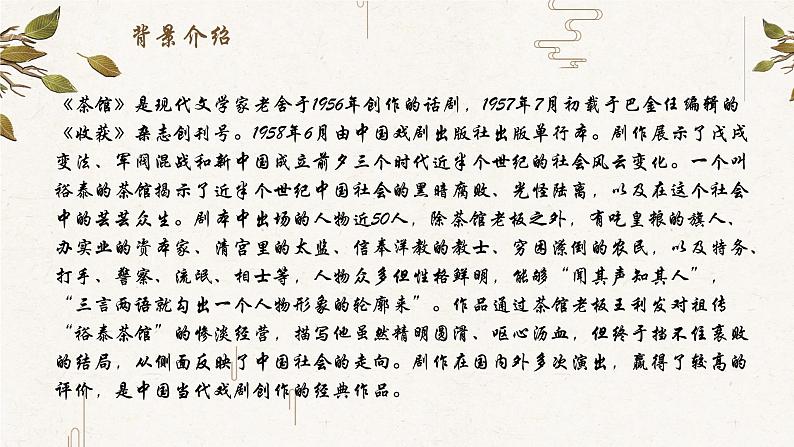 背景介绍
《茶馆》是现代文学家老舍于1956年创作的话剧，1957年7月初载于巴金任编辑的
《收获》杂志创刊号。1958年6月由中国戏剧出版社出版单行本。剧作展示了戊戌
变法、军阀混战和新中国成立前夕三个时代近半个世纪的社会风云变化。一个叫
裕泰的茶馆揭示了近半个世纪中国社会的黑暗腐败、光怪陆离，以及在这个社会
中的芸芸众生。剧本中出场的人物近50人，除茶馆老板之外，有吃皇粮的旗人、
办实业的资本家、清宫里的太监、信奉洋教的教士、穷困潦倒的农民，以及特务、
打手、警察、流氓、相士等，人物众多但性格鲜明，能够“闻其声知其人”，
“三言两语就勾出一个人物形象的轮廓来”。作品通过茶馆老板王利发对祖传
“裕泰茶馆”的惨淡经营，描写他虽然精明圆滑、呕心沥血，但终于挡不住衰败
的结局，从侧面反映了中国社会的走向。剧作在国内外多次演出，赢得了较高的
评价，是中国当代戏剧创作的经典作品。